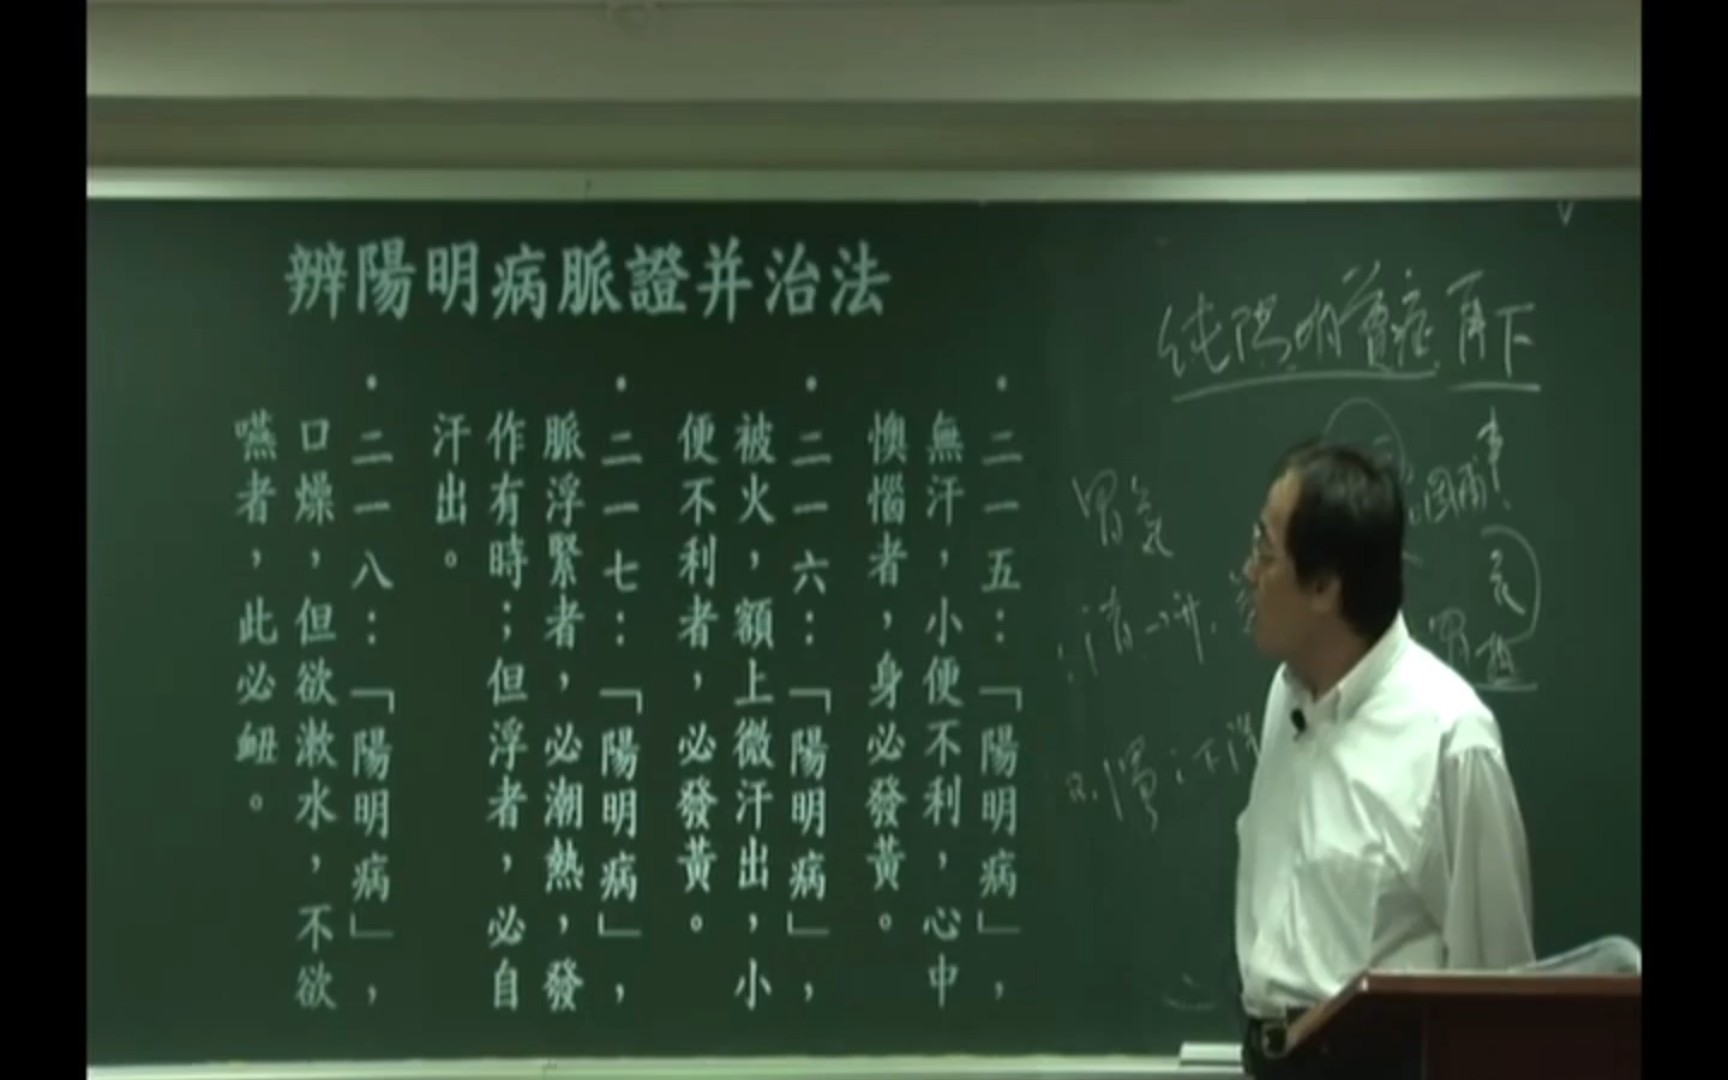 辨陽明病脈證并治法
•二一五：「陽明病」，
無汗，小便不利，心中
懊惱者，身必發黃。
•二一六：「陽明病」，
被火，額上微汗出，小
便不利者，必發黃。
•二一七：「陽明病」，
脈浮緊者，必潮熱，發
作有時；但浮者，必自
汗出。
•二一八：「陽明病」，
口燥，但欲漱水，不欲
嚥者，此必衄。
纯陽明實症 再下
胃氣